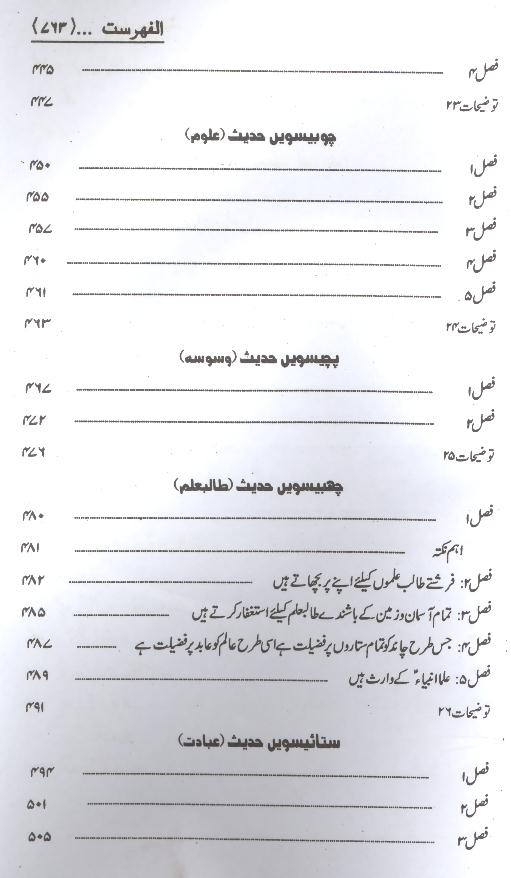 الفہرست ...(۷۶۳)
فصل۴ ۴۴۵
توضیحات۲۳ ۴۴۷
چوبیسویں حدیث (علوم)
فصل۱ ۴۵۰
فصل۲ ۴۵۵
فصل۳ ۴۵۷
فصل۴ ۴۶۰
فصل۵ ۴۶۱
توضیحات۲۴ ۴۶۳
پچیسویں حدیث (وسوسہ)
فصل۱ ۴۶۷
فصل۲ ۴۷۲
توضیحات۲۵ ۴۷۶
چھبیسویں حدیث (طالبعلم)
فصل۱ ۴۸۰
اہم نکتہ ۴۸۱
فصل۲: فرشتے طالب علموں کیلئے اپنے پر بچھاتے ہیں ۴۸۲
فصل۳: تمام آسمان و زمین کے باشندے طالبعلم کیلئے استغفار کرتے ہیں ۴۸۵
فصل۴: جس طرح چاند کو تمام ستاروں پر فضیلت ہے اسی طرح عالم کو عابد پر فضیلت ہے ۴۸۷
فصل۵: علما انبیاءؑ کے وارث ہیں ۴۸۹
توضیحات۲۶ ۴۹۱
ستائیسویں حدیث (عبادت)
فصل۱ ۴۹۴
فصل۲ ۵۰۱
فصل۳ ۵۰۵